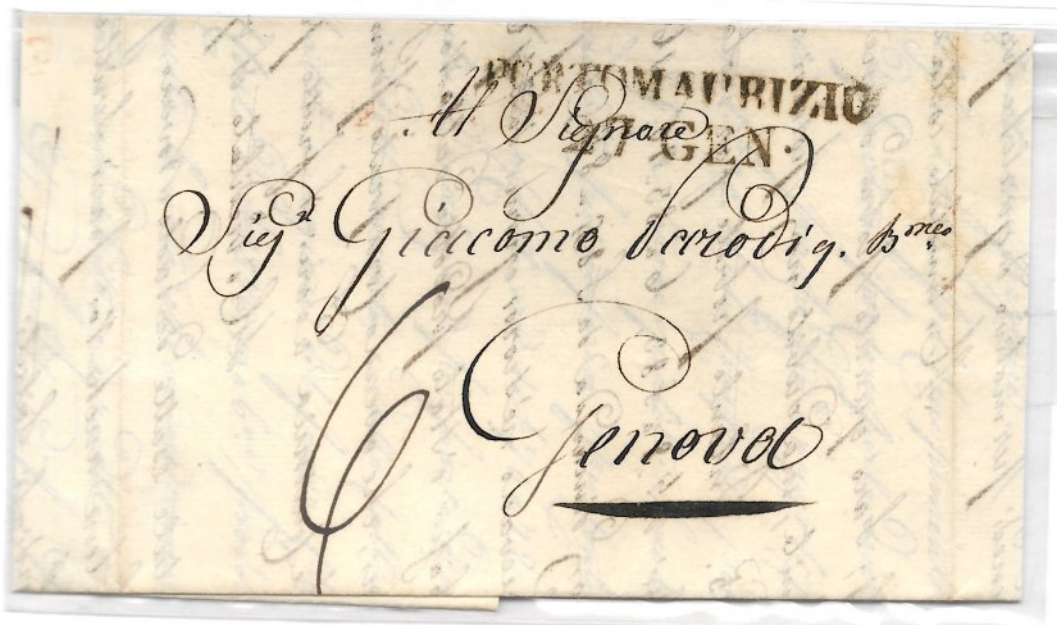 PORTOMAURIZIO
27 GEN.
Al Signore
Sigr Giacomo Parodi q. Bmeo
6 Genova